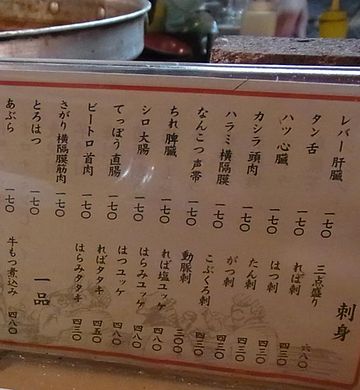 レバー 肝臓 一七〇
タン 舌 一七〇
ハツ 心臓 一七〇
カシラ 頭肉 一七〇
ハラミ 横隔膜 一七〇
なんこつ 声帯 一七〇
ちれ 脾臓 一七〇
シロ 大腸 一七〇
てっぽう 直腸 一七〇
ビートロ 首肉 一七〇
さがり 横隔膜筋肉 一七〇
とろはつ 一七〇
あぶら 一七〇
刺身
三点盛り 六八〇
れば刺 四三〇
はつ刺 四三〇
たん刺 四三〇
がつ刺 四三〇
こぶくろ刺 四三〇
動脈刺 三〇〇
れば塩ユッケ 四八〇
はらみユッケ 四八〇
はつユッケ 四八〇
ればタタキ 四五〇
はらみタタキ 四三〇
一品
牛もつ煮込み 四八〇